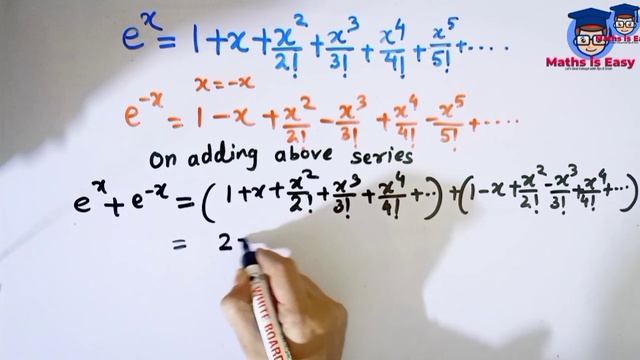 e^x = 1 + x + x^2/2! + x^3/3! + x^4/4! + x^5/5! + ....
x = -x
e^-x = 1 - x + x^2/2! - x^3/3! + x^4/4! - x^5/5! + ....
On adding above series
e^x + e^-x = (1 + x + x^2/2! + x^3/3! + x^4/4! + ..) + (1 - x + x^2/2! - x^3/3! + x^4/4! + ...)
= 2 +
WHITE BOARD
Maths Is Easy
Maths Is Easy